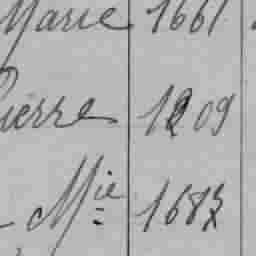 Marie 1661
Pierre 1209
Mie 1683